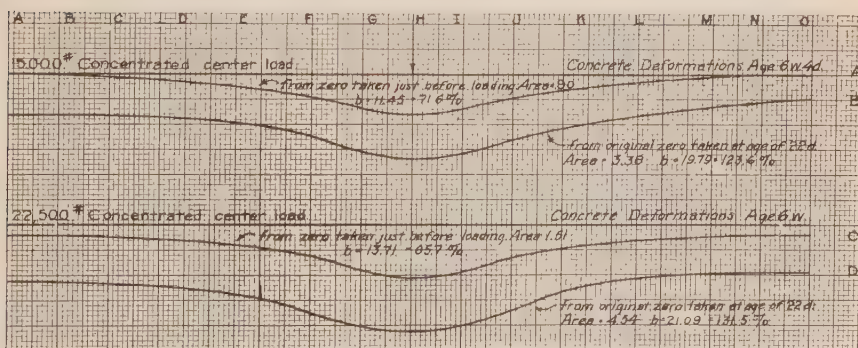 A B C D E F G H I J K L M N O
15,000# Concentrated center load.
Concrete Deformations Age 6w4d.
A
from zero taken just before loading. Area=.90
b=11.45=71.6%
B
from original zero taken at age of 22d.
Area = 3.38 b=19.79=123.6%
22,500# Concentrated center load.
Concrete Deformations Age 6w.
from zero taken just before loading. Area 1.51
b=13.71 =85.7%
C
D
from original zero taken at age of 22d.
Area = 4.54 b=21.09=131.5%